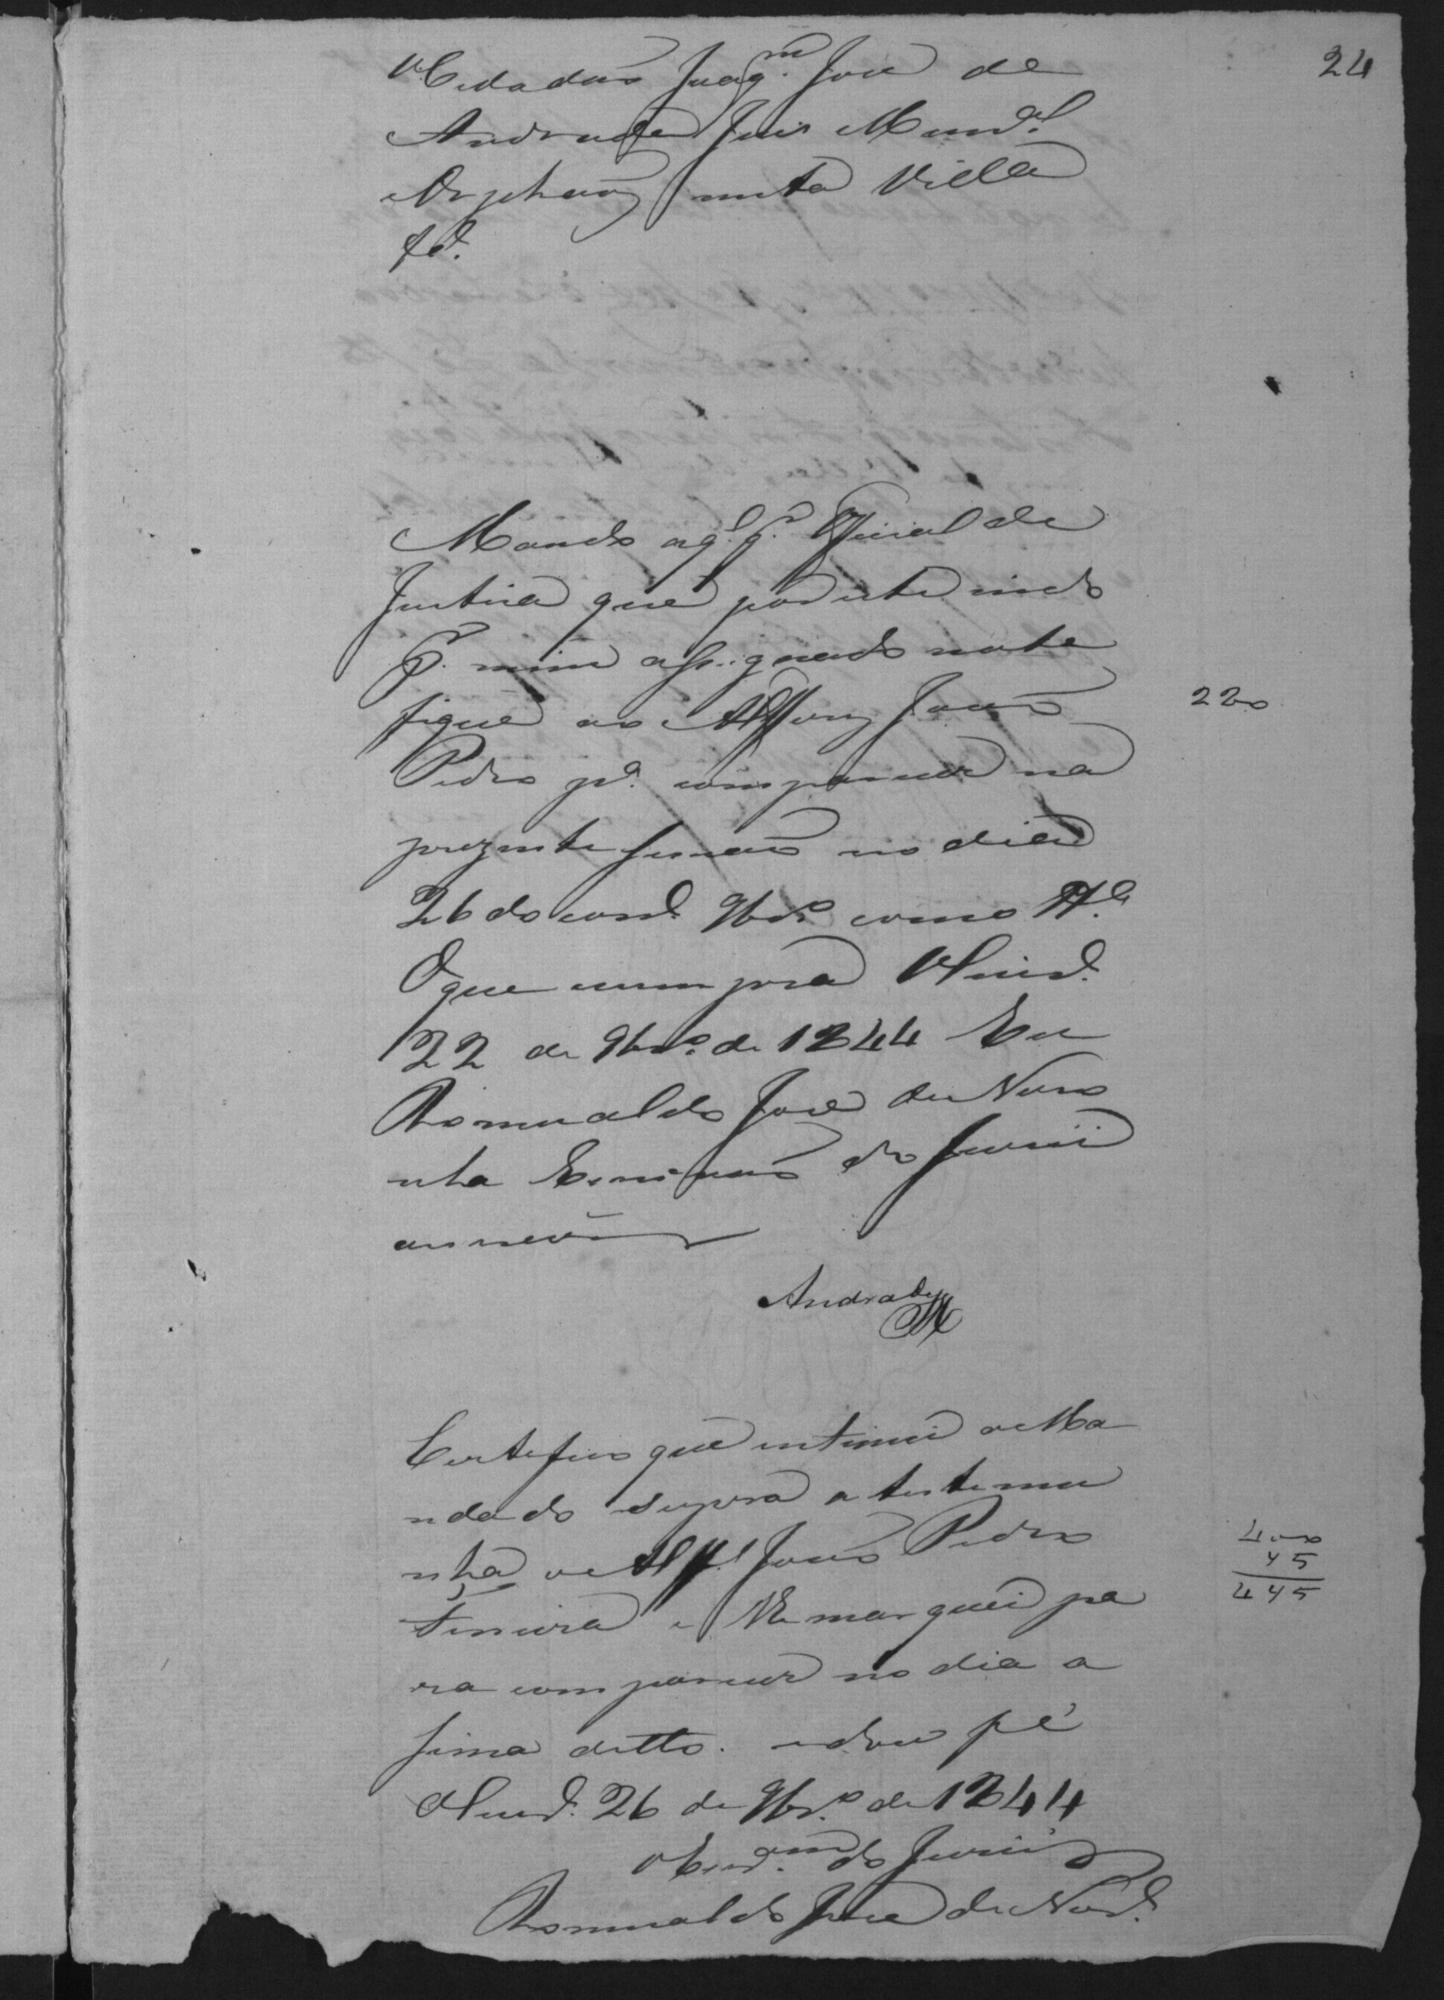 24
O Cidadão Joaq.m José de
Andrade Juis Mun.al
e Orphãos nesta Villa
&.a
Mando a q.l q.r Official de
Justiça que por este indo
P.r mim assignado note
fique ao Alferes João
Pedro p.a comparecer na
prezente sessão no dia
26 do corr.e 9br.o como tt.a
O que cumpra
22 de 9br.o de 1844 Eu
Romualdo José de Noro
nha Escrivão do Jurii
escrevi
Andrade
220
Certefico que intimei o Ma
ndado supra a testemu
nha o Alf.s João Pedro
e lhe marquei pa
ra comparecer no dia a
sima ditto. e dou fé
26 de 9br.o de 1844
O Escr.am do Jurii
Romualdo José de Nor.a
400
45
445